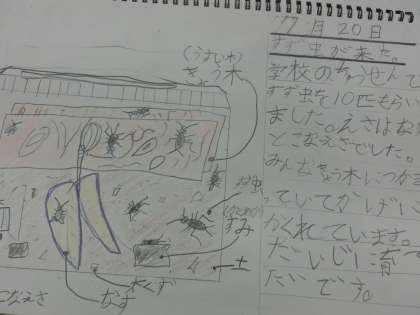 7月20日
すず虫が来た。
学校のちゅうせんで
すず虫を10匹もらい
ました。えさはな
とこなえさでした。
みんなきょう木につかま
っていてかげに
かくれています。
だいじに育て
たいです。
(うすいわ)
きょう木
すず虫
すみ
土
木くず
なす
こなえさ